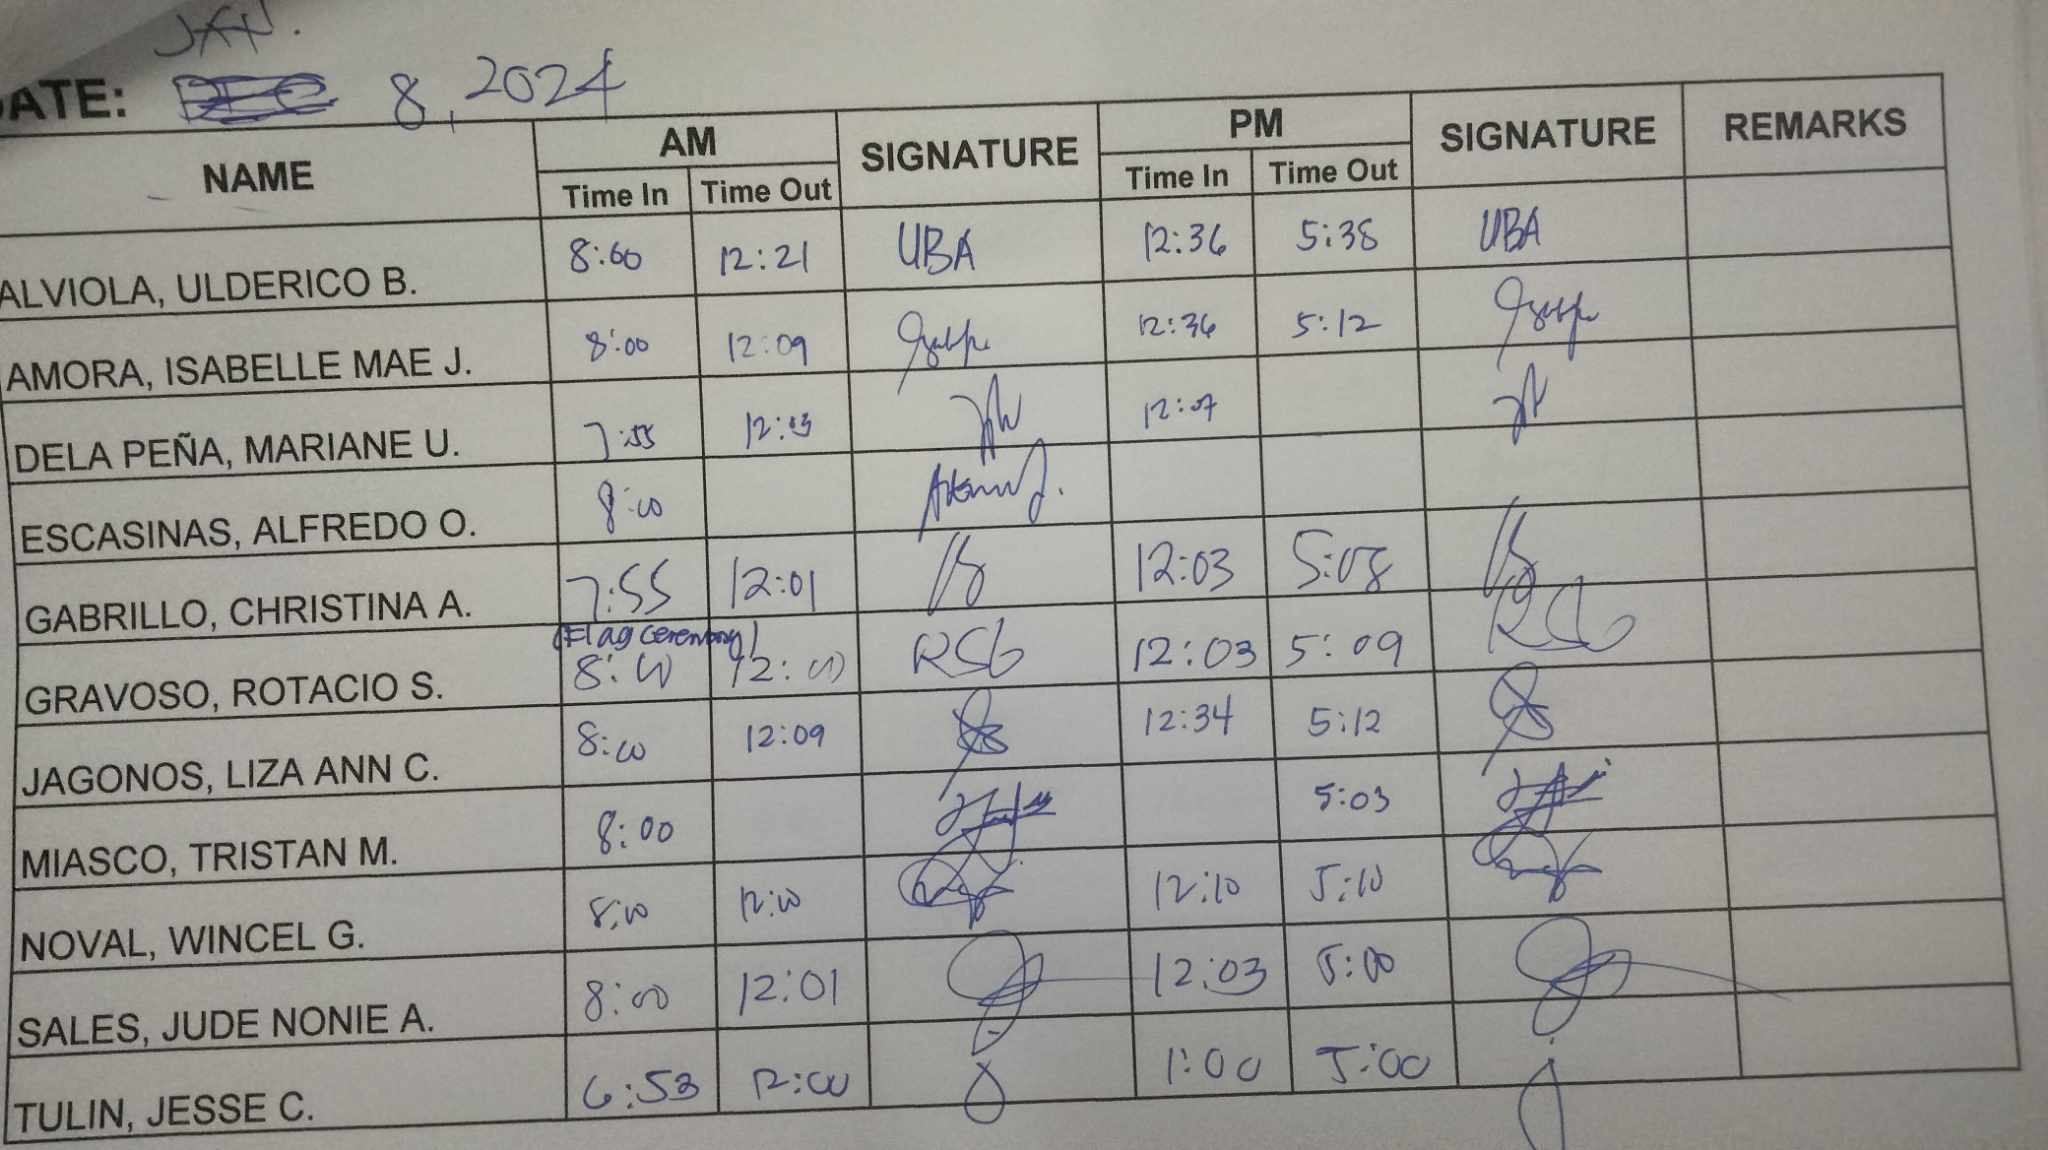 JAN.
DATE: 8, 2024
NAME AM SIGNATURE PM SIGNATURE REMARKS
Time In Time Out Time In Time Out
ALVIOLA, ULDERICO B. 8:00 12:21 UBA 12:36 5:38 UBA
AMORA, ISABELLE MAE J. 8:00 12:09 12:36 5:12
DELA PEÑA, MARIANE U. 7:55 12:03 12:07
ESCASINAS, ALFREDO O. 8:00
GABRILLO, CHRISTINA A. 7:55 12:01 12:03 5:08
(Flag ceremony)
GRAVOSO, ROTACIO S. 8:00 12:00 RSG 12:03 5:09 RSG
JAGONOS, LIZA ANN C. 8:00 12:09 12:34 5:12
MIASCO, TRISTAN M. 8:00 5:03
NOVAL, WINCEL G. 8:00 12:00 12:10 5:10
SALES, JUDE NONIE A. 8:00 12:01 12:03 5:00
TULIN, JESSE C. 6:53 12:00 1:00 5:00